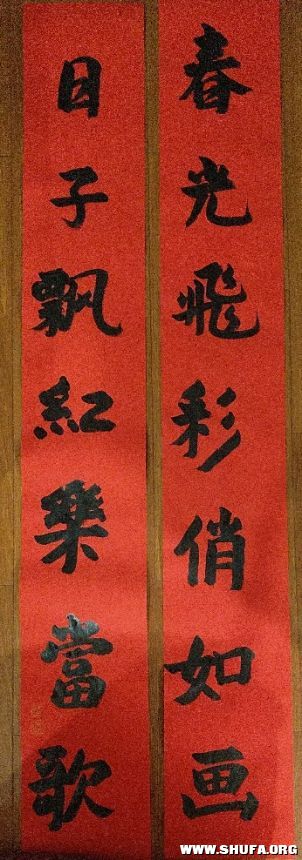 春光飛彩俏如画
日子飘紅樂當歌
WWW.SHUFA.ORG